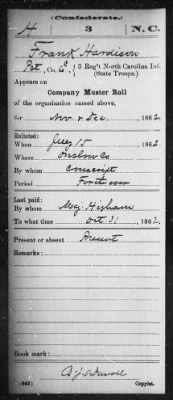 (Confederate.)
H 3 N.C.
Frank Hardison
Pvt, Co. E, 3 Reg't North Carolina Inf.
(State Troops.)
Appears on
Company Muster Roll
of the organization named above,
for Nov & Dec, 1862
Enlisted:
When July 15, 1862
Where Onslow Co
By whom conscript
Period For the war
Last paid:
By whom Maj. Higham
To what time Oct 31, 1862
Present or absent Present
Remarks:
Book mark:
(642) Copyist.